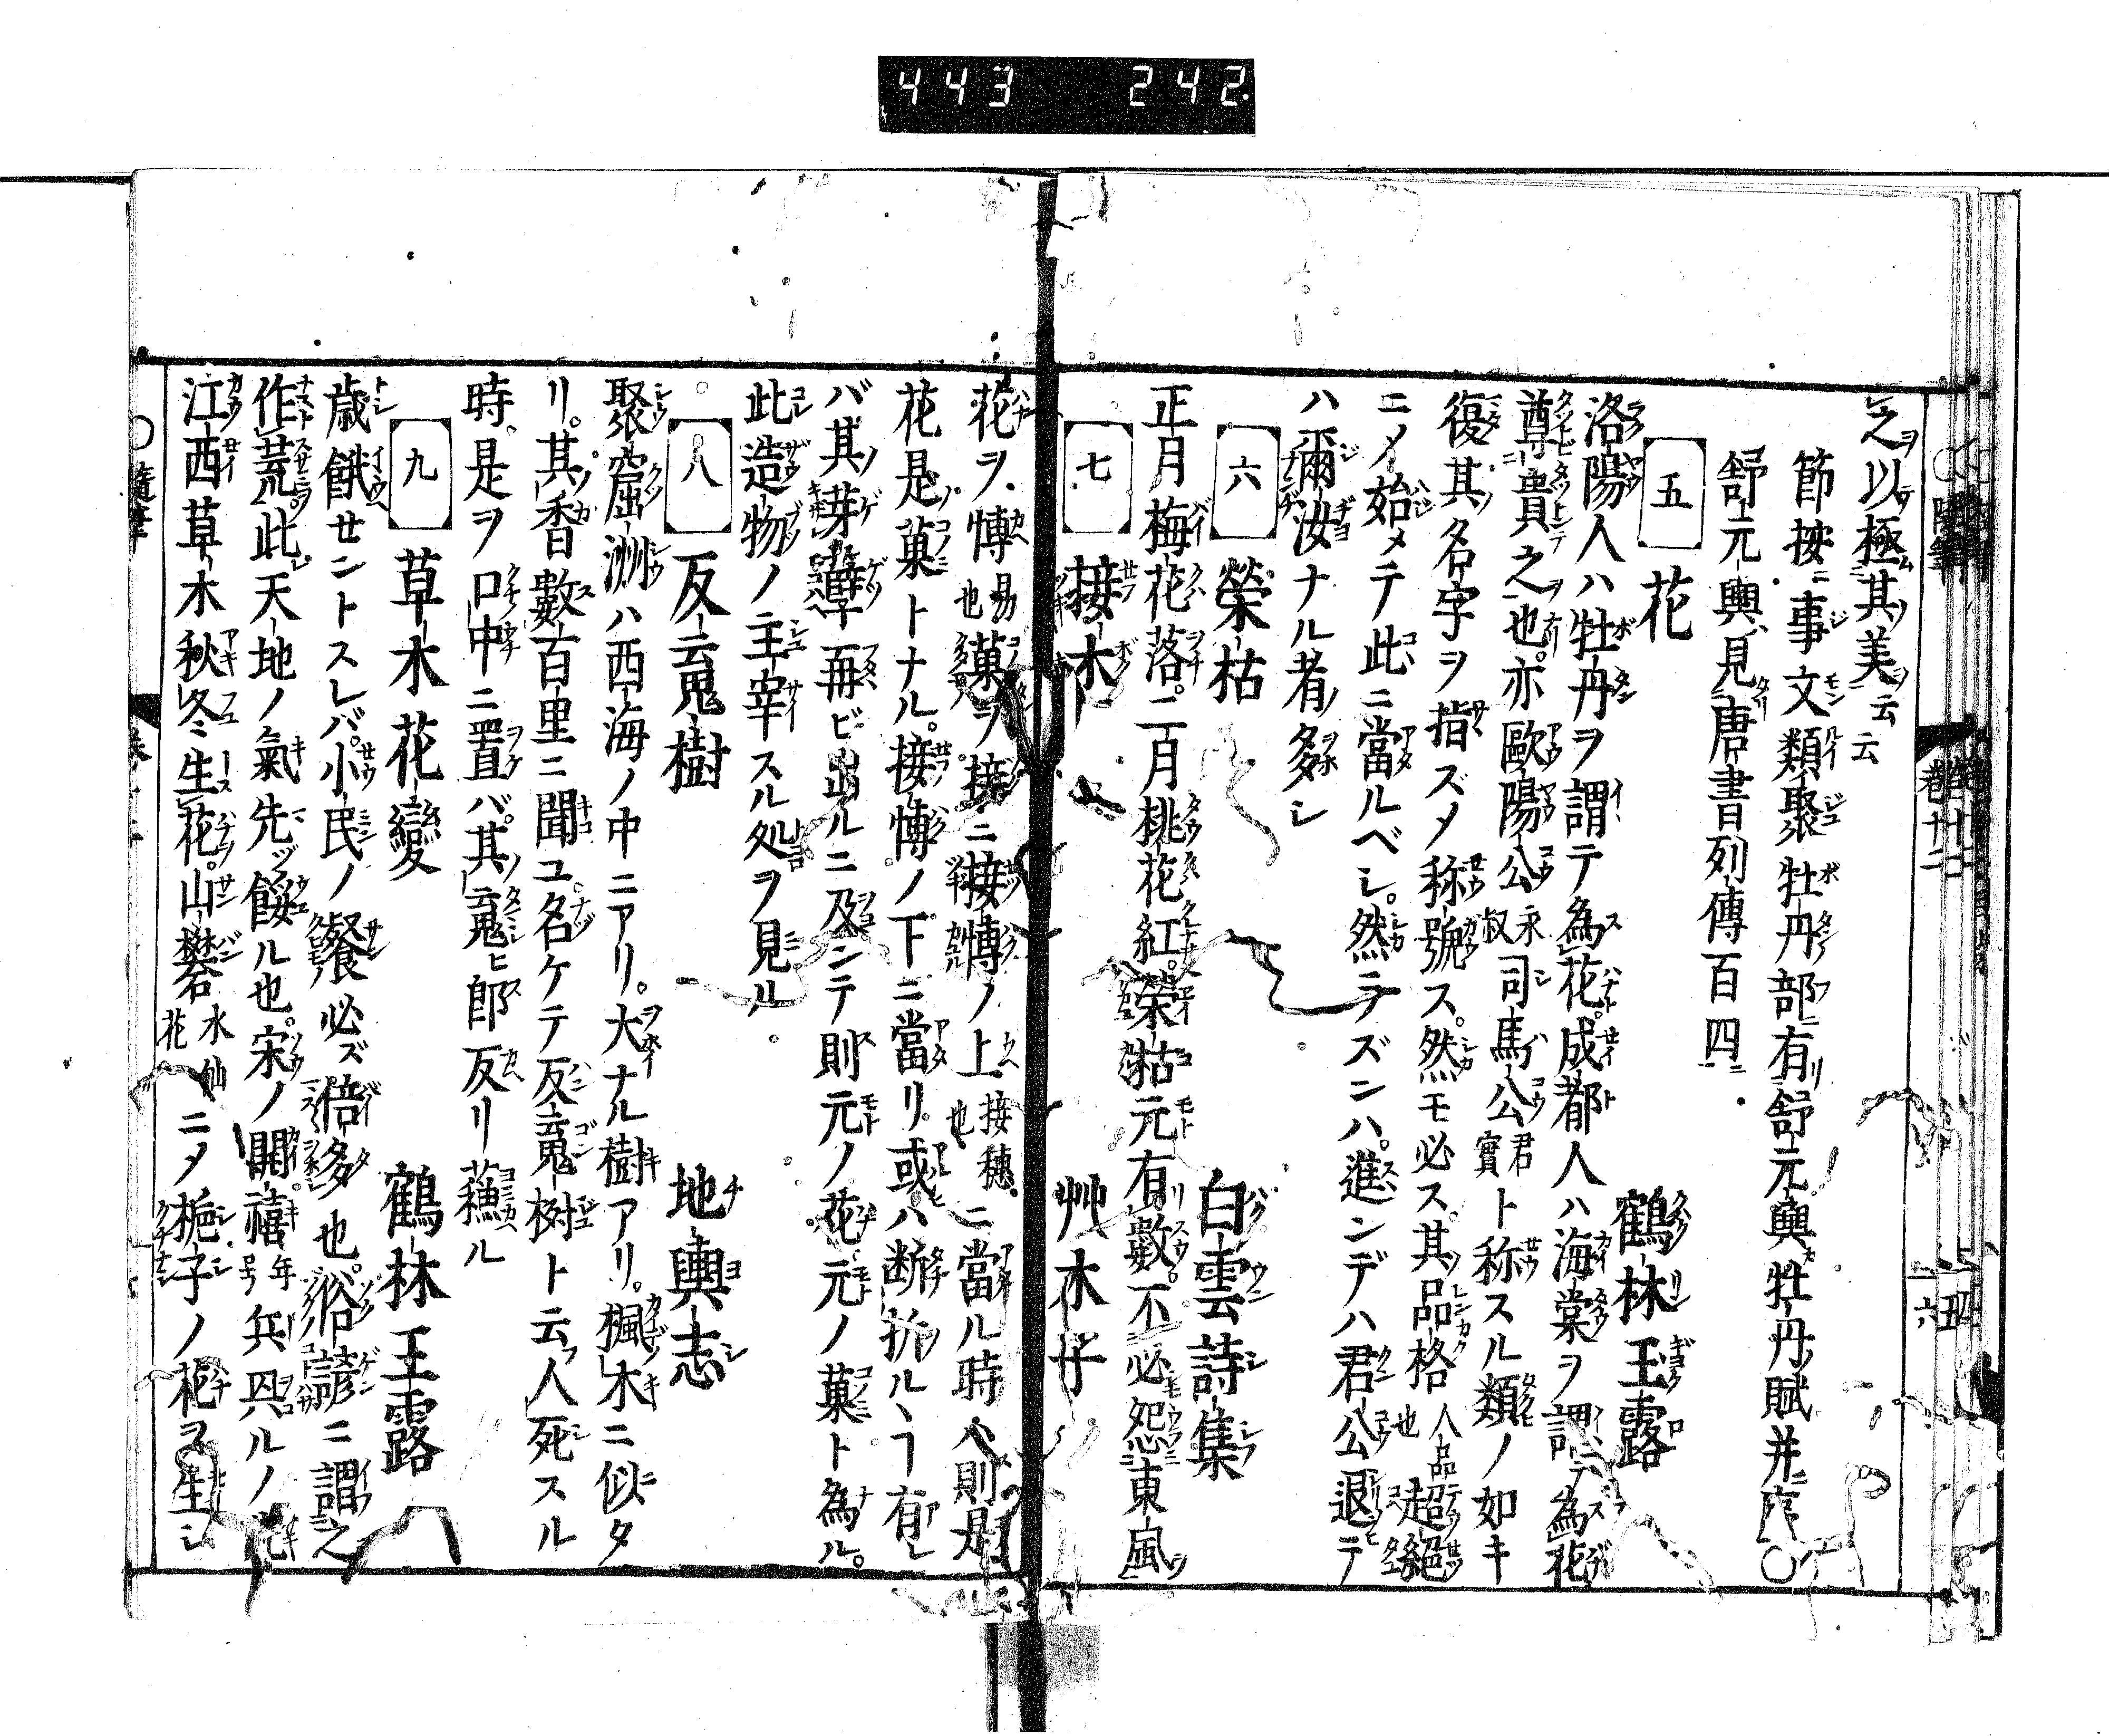 443 242
之以極其美云云
節按ニ事文類聚牡丹部ニ有舒元輿牡丹賦并序〇
舒元輿見唐書列傳百四
五 花 鶴林玉露
洛陽人ハ牡丹ヲ謂テ為花成都人ハ海棠ヲ謂テ為花
尊貴之也亦歐陽公永叔司馬公君實ト称スル類ノ如キ
復其名字ヲ指ズメ称號ス然モ必ス其品格人品也超絕
ニメ始メテ此ニ當ルベシ然ラズンハ進ンデハ君公退テ
ハ爾汝ナル者多シ
六 榮枯 白雲詩集
正月梅花落二月桃花紅榮枯元有數不必怨東風
七 接木 艸木子
花ヲ愽易也菓ヲ接ニ接愽ノ上接穗也ニ當ル時ハ則是
花是菓トナル接愽ノ下ニ當リ或ハ断折ルヿ有レ
バ其芽蘖再ビ出ルニ及ンテ則元ノ花元ノ菓ト為ル
此造物ノ主宰スル処ヲ見ル
八 反䰟樹 地輿志
聚窟洲ハ西海ノ中ニアリ大ナル樹アリ楓木ニ似タ
リ其香數百里ニ聞ユ名ケテ反䰟樹ト云人死スル
時是ヲ口中ニ置バ其䰟ヒ即反リ蘓ル
九 草木花變 鶴林玉露
歳餓せントスレバ小民ノ餐必ズ倍多也俗諺ニ謂之
作荒此天地ノ氣先ヅ餒ル也宋ノ開禧年号兵興ルノ
江西草木秋冬生花山礬水仙花ニメ梔子ノ花ヲ生シ
卷廿二
六